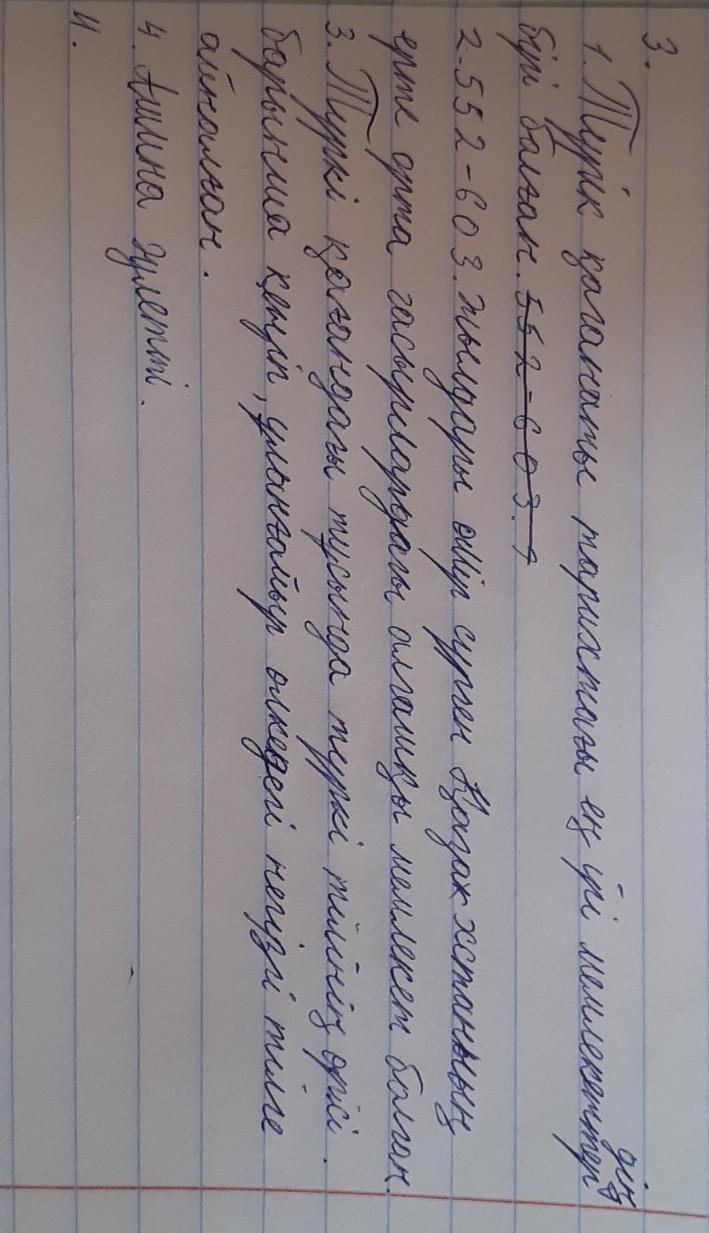 3.
1. Түрік қағанаты тарихтағы ең ірі мемлекеттер
дің
бірі болған. 552-603.
2. 552-603. жылдары өмір сүрген Қазақстанның
ерте орта ғасырлардағы алғашқы мемлекет болған.
3. Түркі қағандағы тусында түркі тілінің өрісі
барынша кеңіп, ұланғайыр өлкедегі негізгі тілге
айналған.
4. Ашина әулетті.
4.